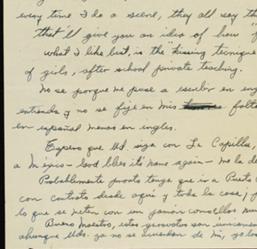 every time I do a scene, they all say th
that'll give you an idea of how f
what I like best, is the kissing tecnique
of girls, after school private teaching.
No se porque me puse a escribir en eng
entienda y no se fije en mis faltas
en español menos en ingles.
Espero que Ud. siga con La Capilla,
a México - lord bles its name again - no la de
Probablemente pronto tenga que ir a Puerto
con contrato desde aqui y toda la cosa; y
lo que se meten con un jamon
Bueno Maestro, estos